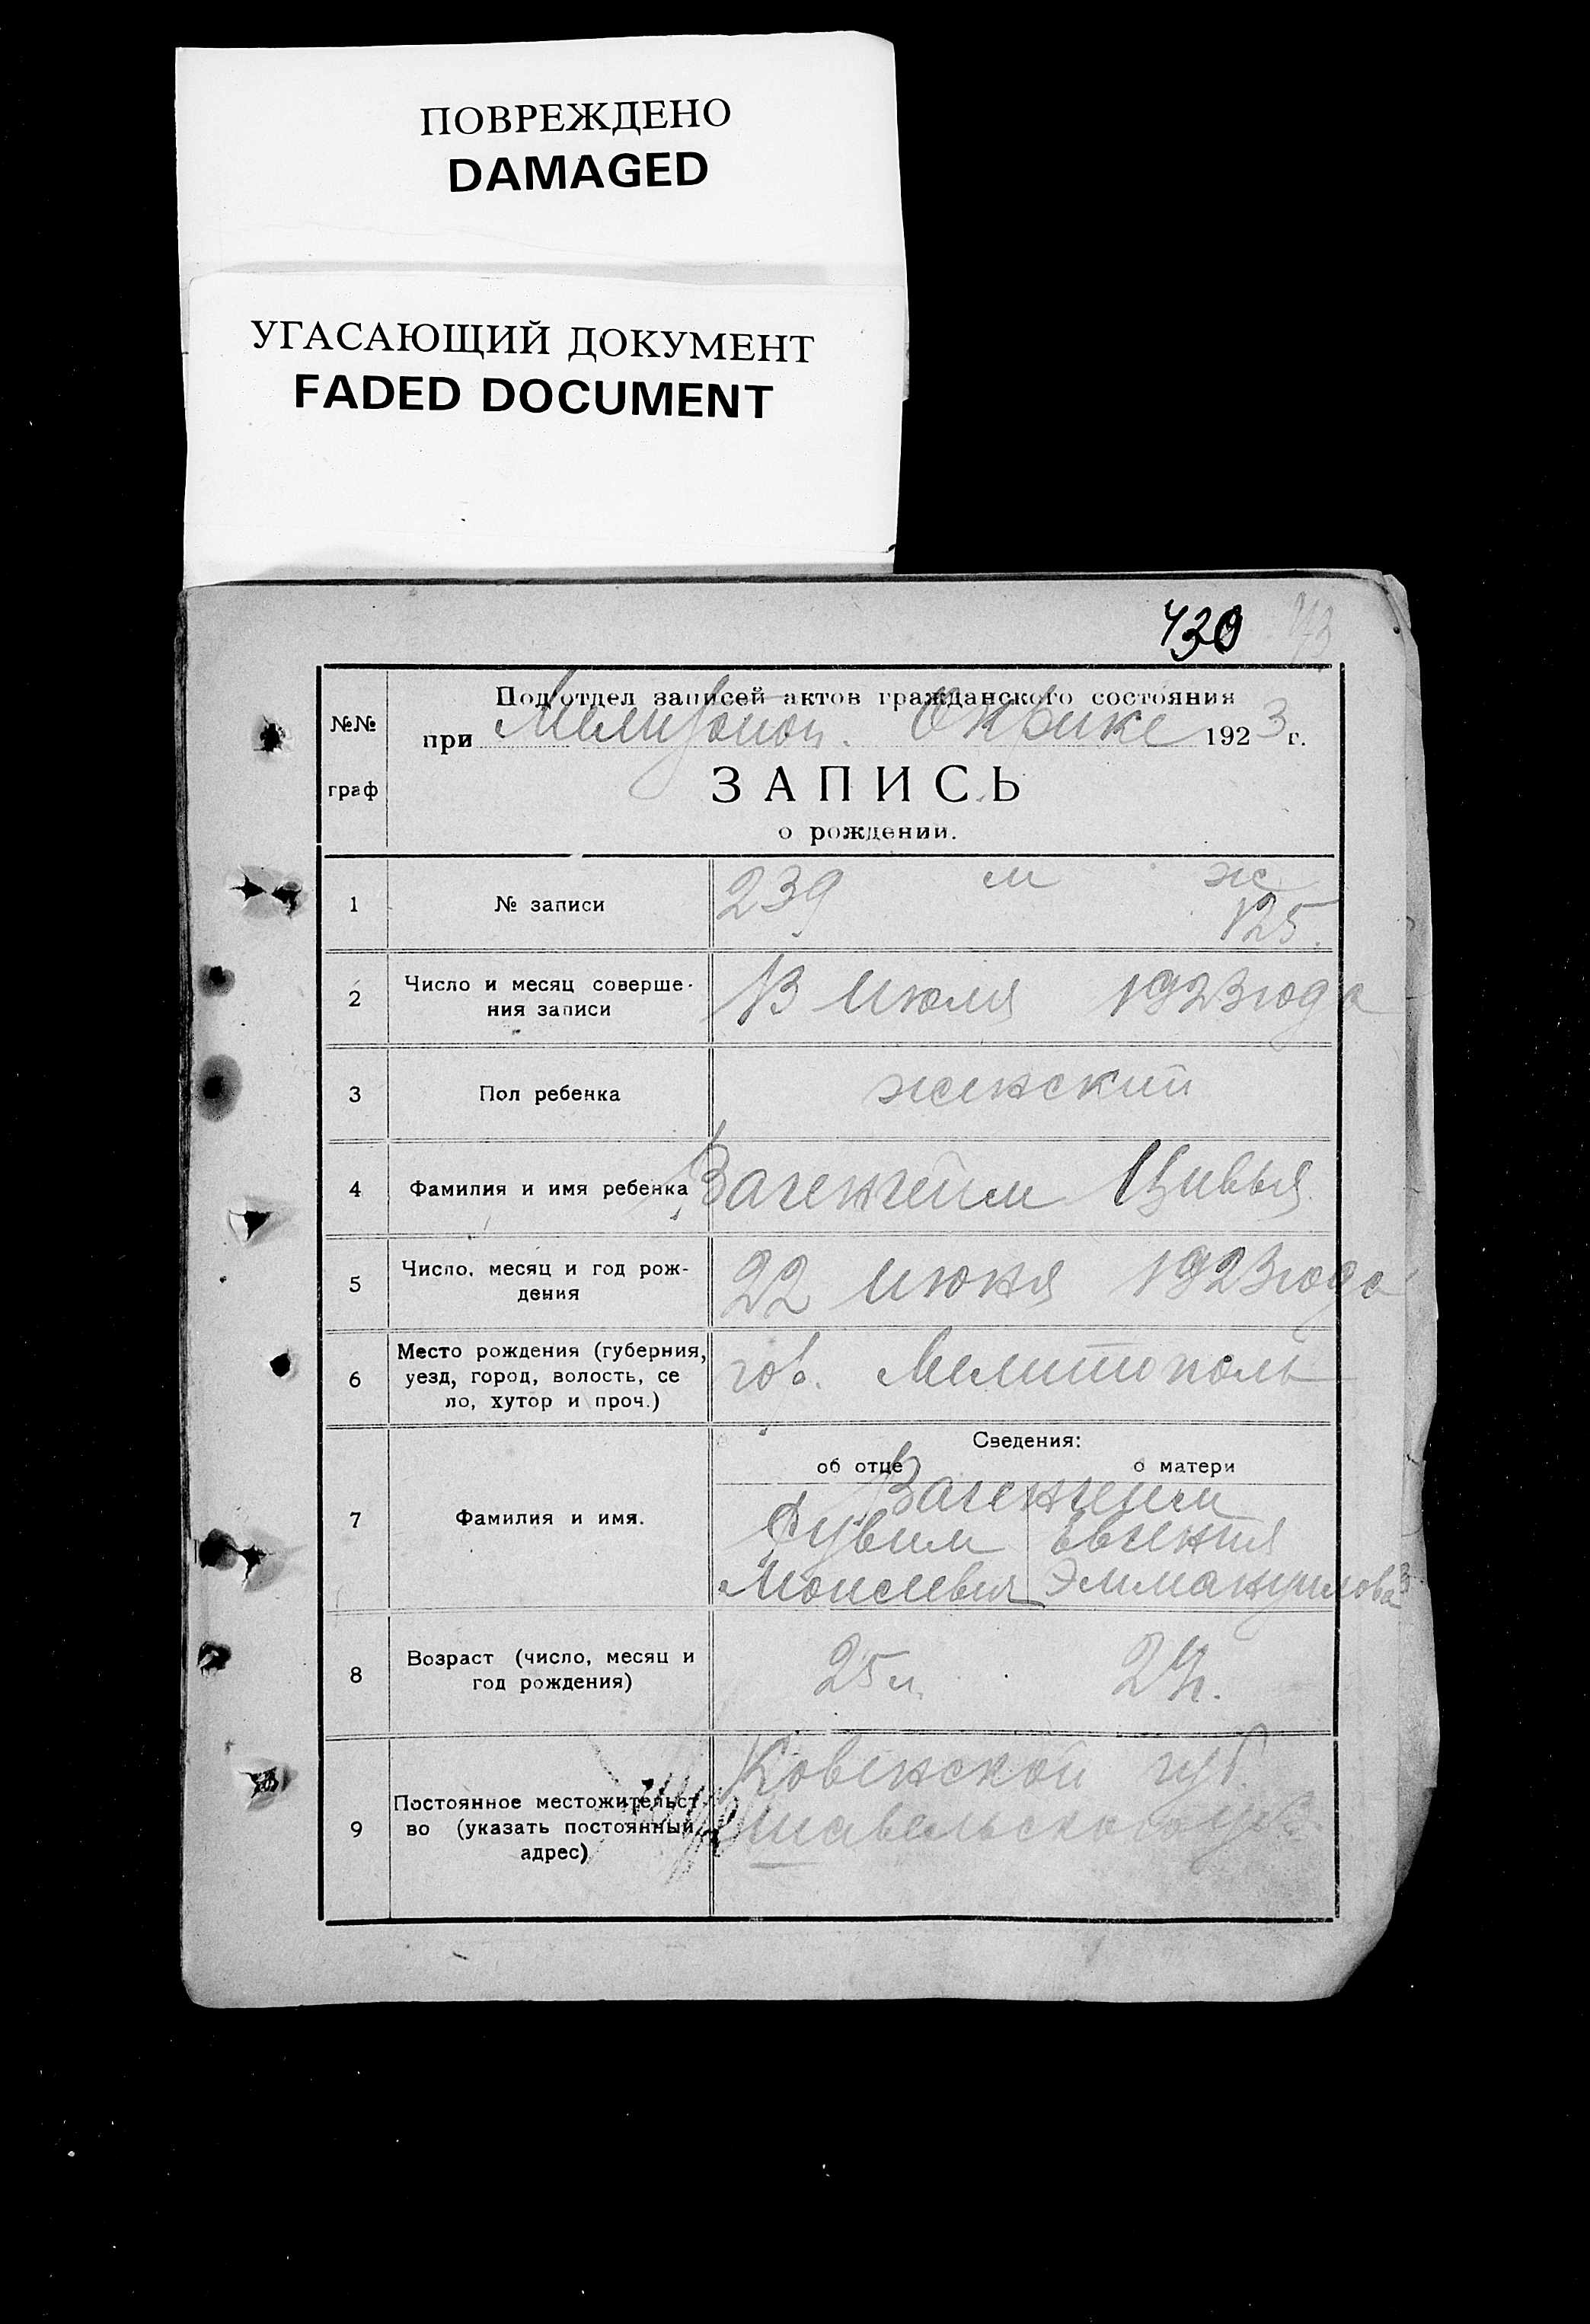 ПОВРЕЖДЕНО
DAMAGED
УГАСАЮЩИЙ ДОКУМЕНТ
FADED DOCUMENT
430
№№ граф
Подотдел записей актов гражданского состояния
при Мелитопол. Окрике 1923 г.
ЗАПИСЬ
о рождении.
1 № записи 239 м ж
125.
2 Число и месяц соверше-
ния записи 13 Июля 1923 года
3 Пол ребенка женский
4 Фамилия и имя ребенка Вагенгейм Цивья
5 Число, месяц и год рож-
дения 22 Июня 1923 года
6 Место рождения (губерния,
уезд, город, волость, се
ло, хутор и проч.) гор. Мелитополь
Сведения:
об отце о матери
7 Фамилия и имя. Вагенгейм
Рувим Евгения
Моисеевич Эммануилова
8 Возраст (число, месяц и
год рождения) 25 л.
9 Постоянное местожительст-
во (указать постоянный
адрес)
Ковенской губ.
Шавельского уез.